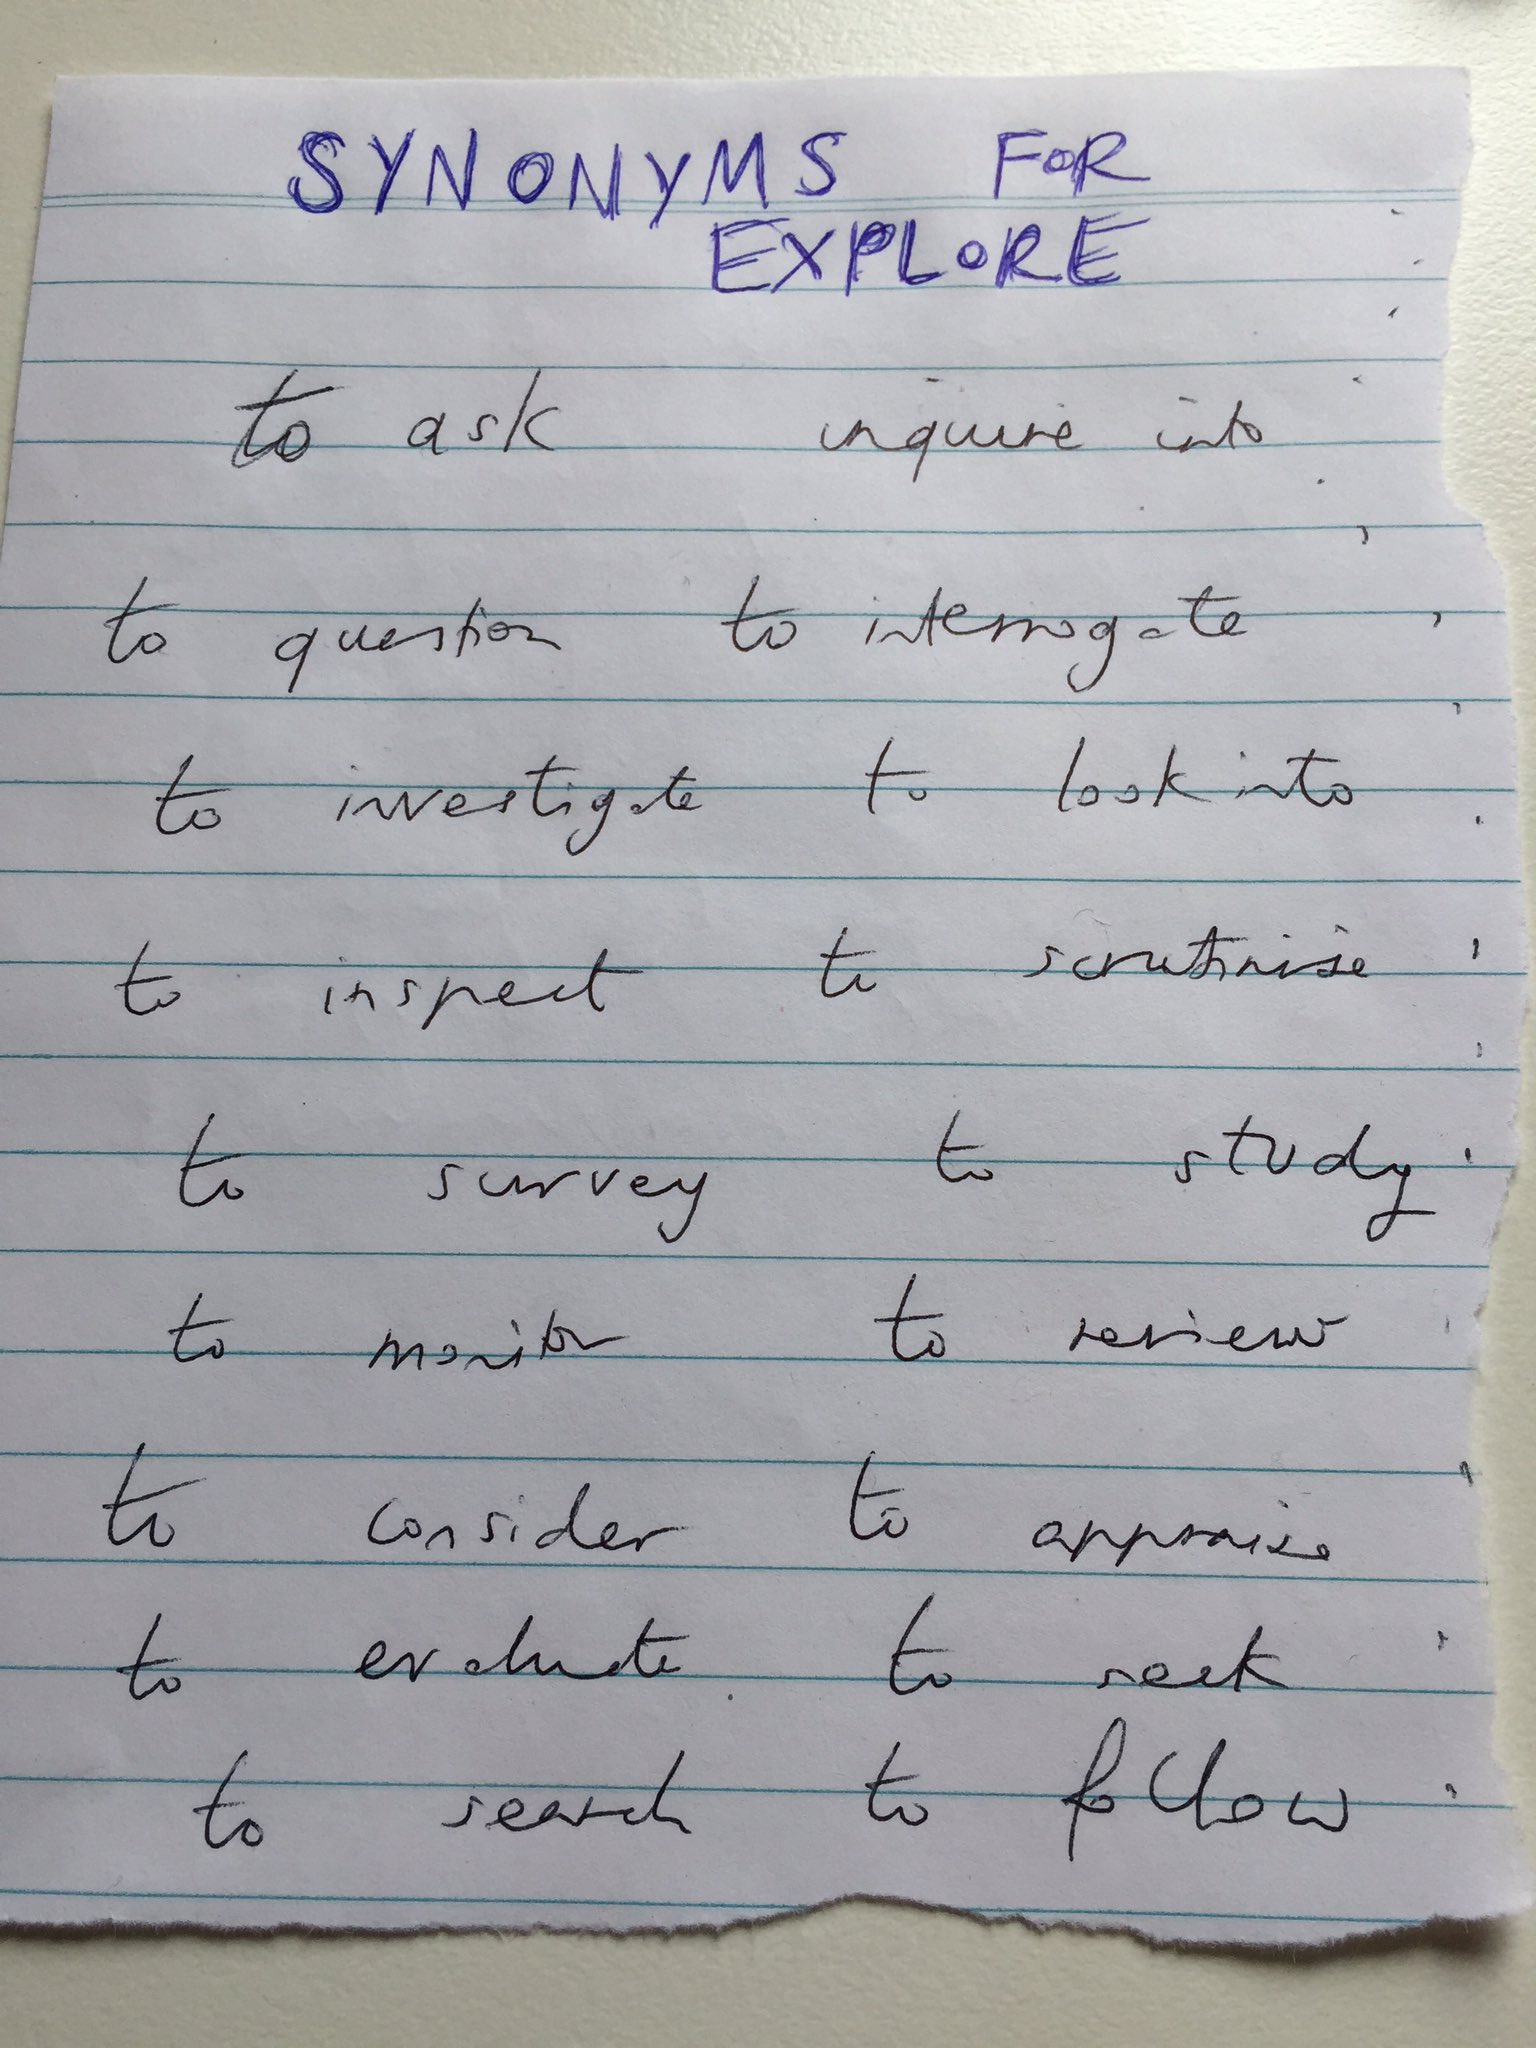 SYNONYMS FOR
EXPLORE
to ask inquire into
to question to interrogate
to investigate to look into
to inspect to scrutinise
to survey to study
to monitor to review
to consider to appraise
to evaluate to seek
to search to follow